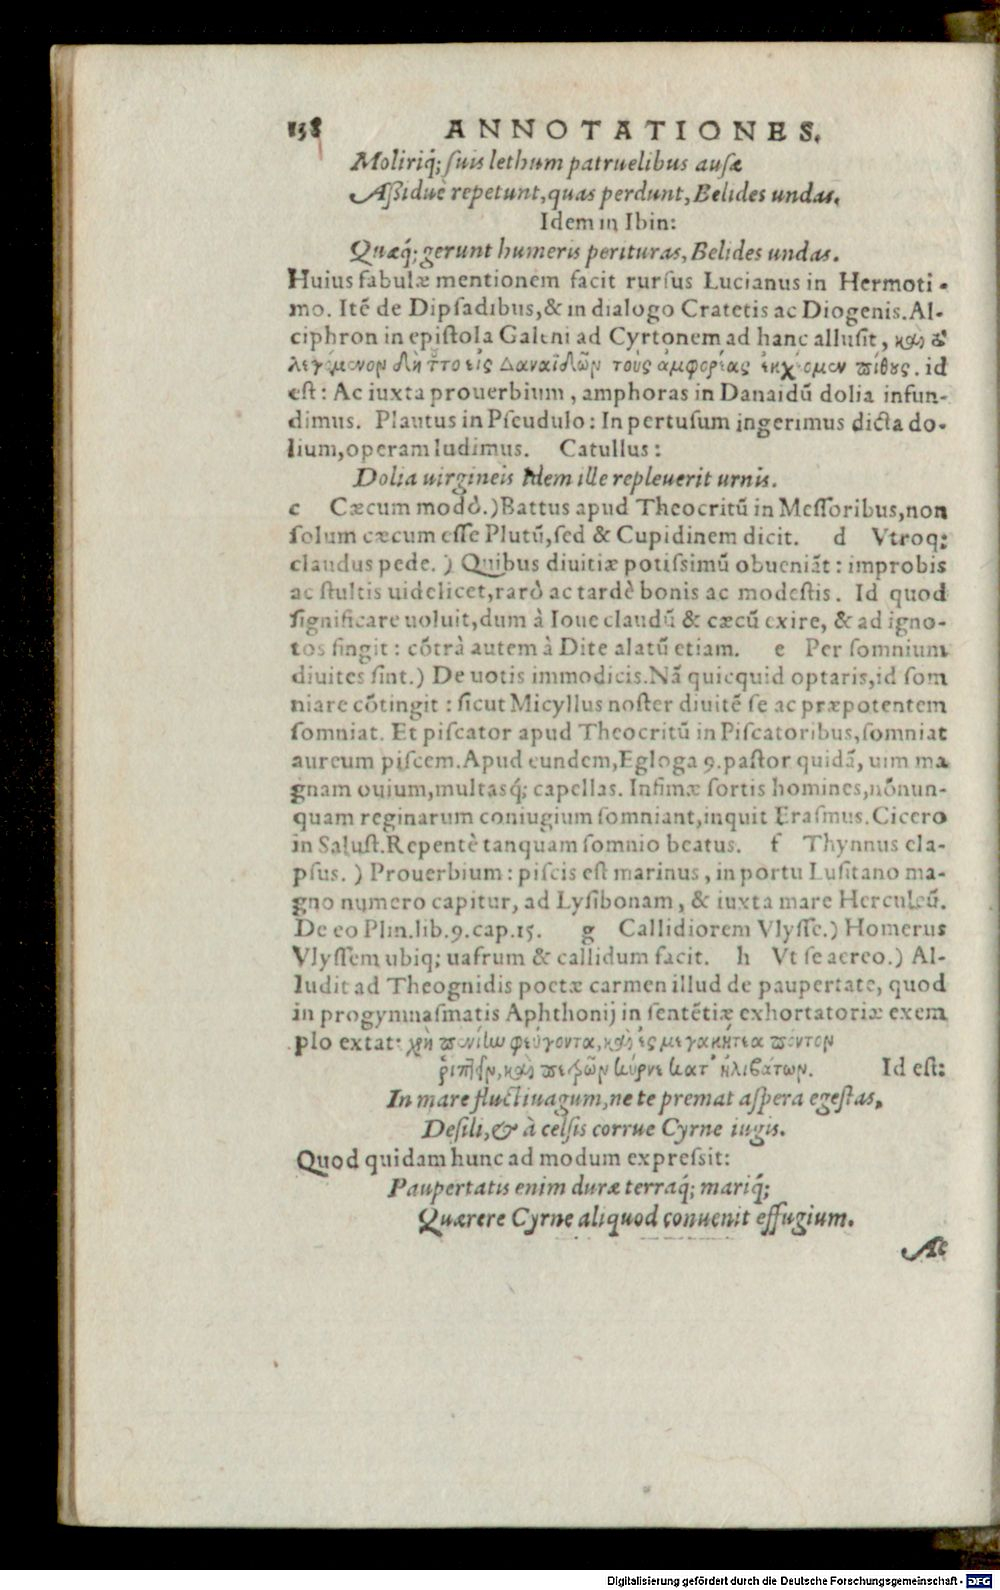 138 ANNOTATIONES.
Moliriq́; ſuis lethum patruelibus auſæ
Aßiduè repetunt, quas perdunt, Belides undas.
Idem in Ibin:
Quæq́; gerunt humeris perituras, Belides undas.
Huius fabulæ mentionem facit rurſus Lucianus in Hermoti-
mo. Itẽ de Dipſadibus,& in dialogo Cratetis ac Diogenis. Al-
ciphron in epiſtola Galeni ad Cyrtonem ad hanc alluſit, καὶ τὸ
λεγόμενον δὴ τοῦτο εἰς Δαναΐδων τοὺς ἀμφορέας ἐκχέομεν πίθους. id
eſt: Ac iuxta prouerbium, amphoras in Danaidũ dolia infun-
dimus. Plautus in Pſeudulo: In pertuſum ingerimus dicta do-
lium, operam ludimus. Catullus:
Dolia uirgineis idem ille repleuerit urnis.
c Cæcum modò.) Battus apud Theocritũ in Meſſoribus, non
ſolum cæcum eſſe Plutũ, ſed & Cupidinem dicit. d Vtroq;
claudus pede. ) Quibus diuitiæ potiſsimũ obueniãt: improbis
ac ſtultis uidelicet, rarò ac tardè bonis ac modeſtis. Id quod
ſignificare uoluit, dum à Ioue claudũ & cæcũ exire, & ad igno-
tos fingit: cõtrà autem à Dite alatũ etiam. e Per ſomnium
diuites ſint.) De uotis immodicis. Nã quicquid optaris, id ſom
niare cõtingit: ſicut Micyllus noſter diuitẽ ſe ac præpotentem
ſomniat. Et piſcator apud Theocritũ in Piſcatoribus, ſomniat
aureum piſcem. Apud eundem, Egloga 9. paſtor quidã, uim ma
gnam ouium, multasq́; capellas. Infimæ ſortis homines, nõnun-
quam reginarum coniugium ſomniant, inquit Eraſmus. Cicero
in Saluſt. Repentè tanquam ſomnio beatus. f Thynnus ela-
pſus. ) Prouerbium: piſcis eſt marinus, in portu Luſitano ma-
gno numero capitur, ad Lyſibonam, & iuxta mare Herculeũ.
De eo Plin. lib. 9. cap. 15. g Callidiorem Vlyſſe.) Homerus
Vlyſſem ubiq; uafrum & callidum facit. h Vt ſe aereo.) Al-
ludit ad Theognidis poetæ carmen illud de paupertate, quod
in progymnaſmatis Aphthonij in ſentẽtiæ exhortatoriæ exem
plo extat: χρὴ πενίαν φεύγοντα, καὶ ἐς μεγακήτεα πόντον
ῥιπτεῖν, καὶ πετρῶν κύρνε κατ' ἠλιβάτων. Id eſt:
In mare fluctiuagum, ne te premat aſpera egeſtas,
Deſili, & à celſis corrue Cyrne iugis.
Quod quidam hunc ad modum expreſsit:
Paupertatis enim duræ terraq́; mariq́;
Quærere Cyrne aliquod conuenit effugium.
Ac
Digitalisierung gefördert durch die Deutsche Forschungsgemeinschaft - DFG